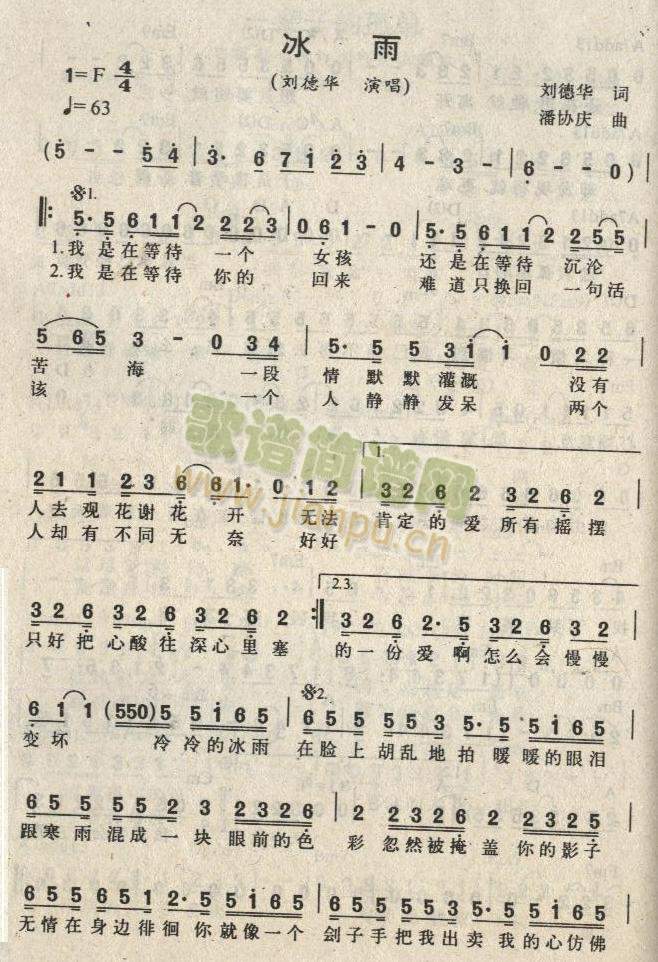 冰 雨
(刘德华 演唱)
1=F 4/4
♩=63
刘德华 词
潘协庆 曲
(5 - - 5 4 | 3· 6 7 1 2 3 | 4 - 3 - | 6 - - 0)
𝄋1.
5· 5 6 1 1 2 2 2 3 | 0 6 1 - 0 | 5· 5 6 1 1 2 2 5 5 |
1.我 是在等待 一个 女孩 还 是在等待 沉沦
2.我 是在等待 你的 回来 难 道只换回 一句话
5 6 5 3 - 0 3 4 | 5· 5 5 3 1 1 0 2 2 |
苦 海 一段 情 默 默 灌溉 没有
该 一个 人 静 静 发呆 两个
1.
2 1 1 2 3 6 6 1· 0 1 2 | 3 2 6 2 3 2 6 2 |
人去 观 花谢 花 开 无法 肯定 的 爱 所有 摇 摆
人却 有 不同 无 奈 好好
2.3.
3 2 6 3 2 6 3 2 6 2 :‖ 3 2 6 2· 5 3 2 6 3 2 |
只好 把 心酸 往 深心 里 塞 的一 份 爱 啊 怎么 会 慢慢
𝄋2.
6 1 1 (5 5 0) 5 5 1 6 5 | 6 5 5 5 5 3 5· 5 5 1 6 5 |
变 坏 冷 冷的冰雨 在脸 上 胡乱 地 拍 暖 暖的眼泪
6 5 5 5 5 2 3 2 3 2 6 | 2 2 3 2 6 2 2 3 2 5 |
跟寒 雨 混成 一 块 眼前的色 彩 忽然被掩 盖 你的影子
6 5 5 6 5 1 2· 5 5 1 6 5 | 6 5 5 5 5 5 5· 5 5 1 6 5 |
无情 在 身边 徘 徊 你 就像一个 刽子 手 把我 出 卖 我 的心仿佛
歌谱简谱网
www.jianpu.cn